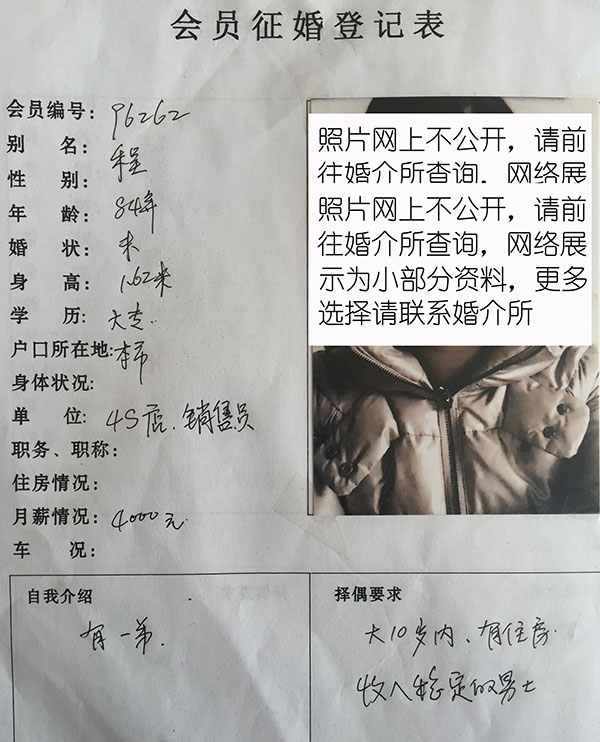 会员征婚登记表
会员编号：96262
别 名：程
性 别：
年 龄：84年
婚 状：未
身 高：1.62米
学 历：大专.
户口所在地：本市
身体状况：
单 位：4S店.销售员
职务、职称：
住房情况：
月薪情况：4000元.
车 况：
照片网上不公开，请前
往婚介所查询，网络展
照片网上不公开，请前
往婚介所查询，网络展
示为小部分资料，更多
选择请联系婚介所
自我介绍
有一弟.
择偶要求
大10岁内、有住房.
收入稳定的男士